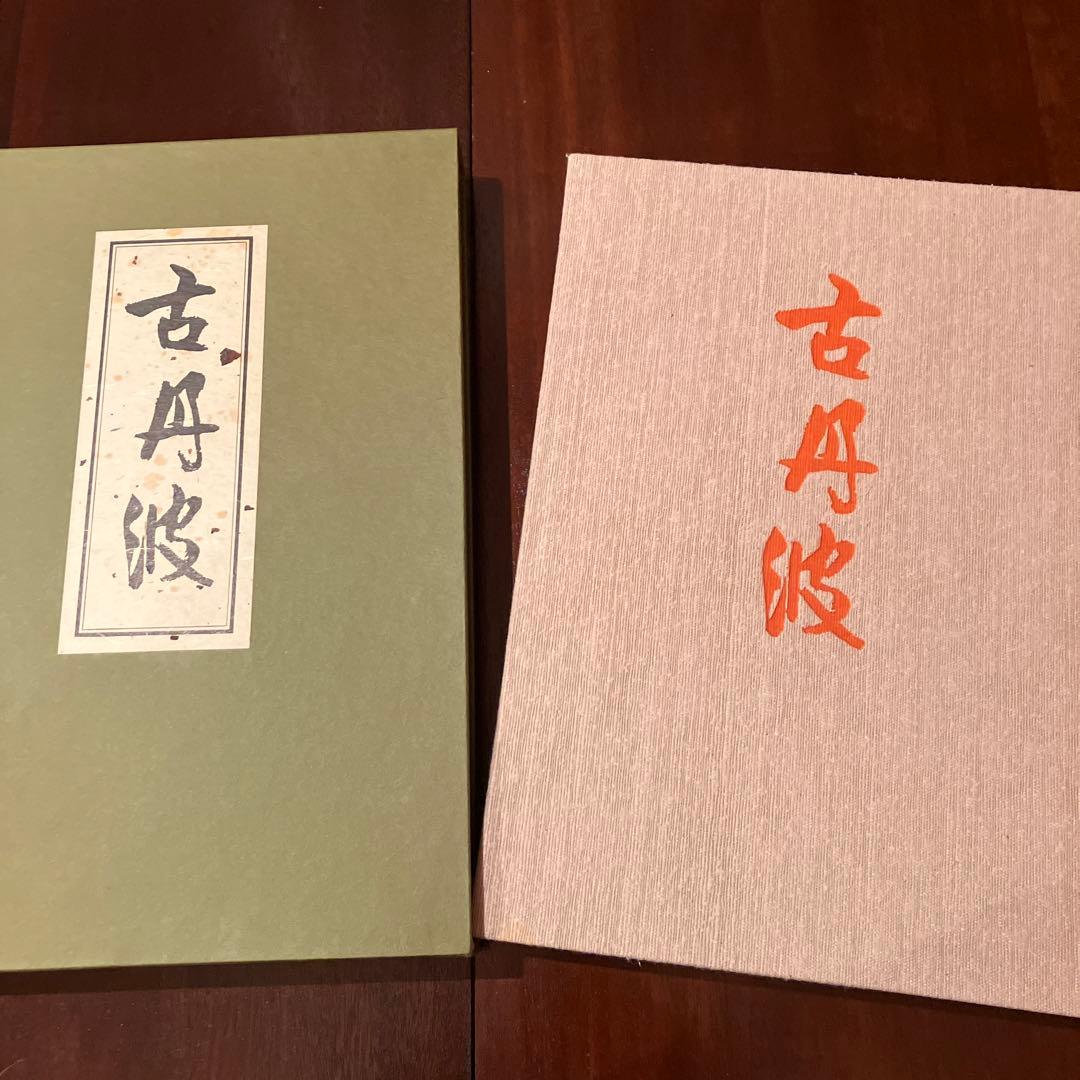 古丹波
古丹波